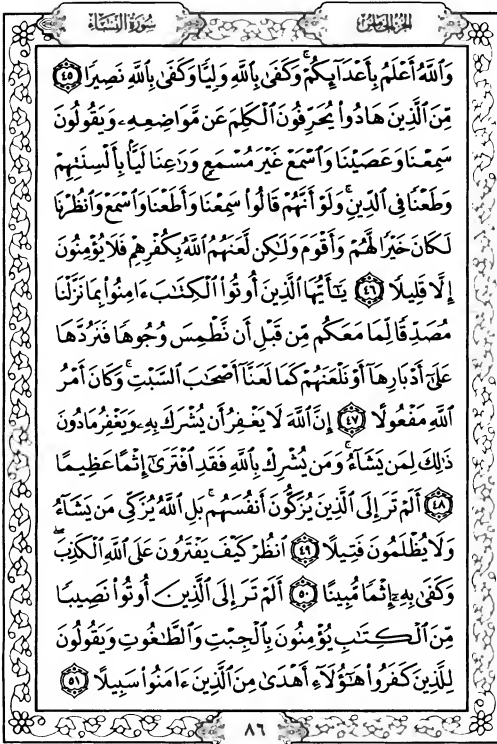 الجزء الخامس
سورة النساء
وَاللَّهُ أَعْلَمُ بِأَعْدَائِكُمْ ۚ وَكَفَىٰ بِاللَّهِ وَلِيًّا وَكَفَىٰ بِاللَّهِ نَصِيرًا ٤٥
مِّنَ الَّذِينَ هَادُوا يُحَرِّفُونَ الْكَلِمَ عَن مَّوَاضِعِهِ وَيَقُولُونَ
سَمِعْنَا وَعَصَيْنَا وَاسْمَعْ غَيْرَ مُسْمَعٍ وَرَاعِنَا لَيًّا بِأَلْسِنَتِهِمْ
وَطَعْنًا فِي الدِّينِ ۚ وَلَوْ أَنَّهُمْ قَالُوا سَمِعْنَا وَأَطَعْنَا وَاسْمَعْ وَانظُرْنَا
لَكَانَ خَيْرًا لَّهُمْ وَأَقْوَمَ وَلَٰكِن لَّعَنَهُمُ اللَّهُ بِكُفْرِهِمْ فَلَا يُؤْمِنُونَ
إِلَّا قَلِيلًا ٤٦ يَا أَيُّهَا الَّذِينَ أُوتُوا الْكِتَابَ ءَامِنُوا بِمَا نَزَّلْنَا
مُصَدِّقًا لِّمَا مَعَكُم مِّن قَبْلِ أَن نَّطْمِسَ وُجُوهًا فَنَرُدَّهَا
عَلَىٰ أَدْبَارِهَا أَوْ نَلْعَنَهُمْ كَمَا لَعَنَّا أَصْحَابَ السَّبْتِ ۚ وَكَانَ أَمْرُ
اللَّهِ مَفْعُولًا ٤٧ إِنَّ اللَّهَ لَا يَغْفِرُ أَن يُشْرَكَ بِهِ وَيَغْفِرُ مَا دُونَ
ذَٰلِكَ لِمَن يَشَاءُ ۚ وَمَن يُشْرِكْ بِاللَّهِ فَقَدِ افْتَرَىٰ إِثْمًا عَظِيمًا
٤٨ أَلَمْ تَرَ إِلَى الَّذِينَ يُزَكُّونَ أَنفُسَهُم ۚ بَلِ اللَّهُ يُزَكِّي مَن يَشَاءُ
وَلَا يُظْلَمُونَ فَتِيلًا ٤٩ انظُرْ كَيْفَ يَفْتَرُونَ عَلَى اللَّهِ الْكَذِبَ ۖ
وَكَفَىٰ بِهِ إِثْمًا مُّبِينًا ٥٠ أَلَمْ تَرَ إِلَى الَّذِينَ أُوتُوا نَصِيبًا
مِّنَ الْكِتَابِ يُؤْمِنُونَ بِالْجِبْتِ وَالطَّاغُوتِ وَيَقُولُونَ
لِلَّذِينَ كَفَرُوا هَٰؤُلَاءِ أَهْدَىٰ مِنَ الَّذِينَ ءَامَنُوا سَبِيلًا ٥١
٨٦